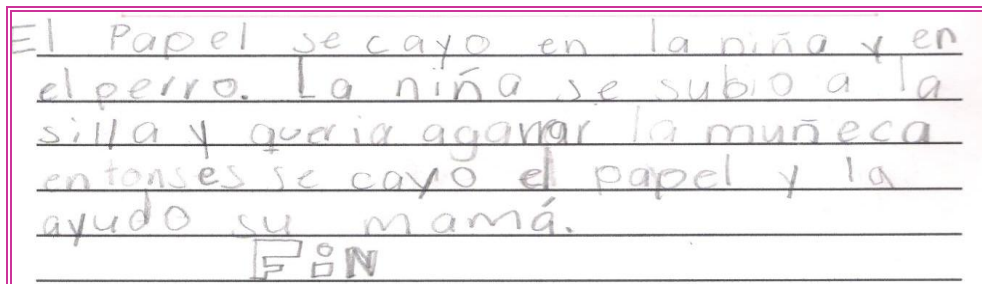 El Papel se cayo en la niña y en
el perro. La niña se subio a la
silla y queria agarrar la muñeca
entonses se cayo el papel y la
ayudo su mamá.
FiN